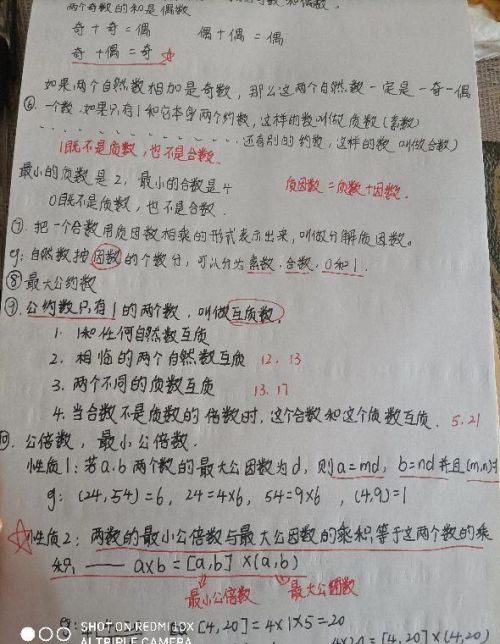 两个奇数的和是偶数
奇+奇=偶 偶+偶=偶
奇+偶=奇
如果两个自然数相加是奇数，那么这两个自然数一定是一奇一偶
⑥ 一个数，如果只有1和它本身两个约数，这样的数叫做质数(素数)
还有别的约数，这样的数叫做合数)
1既不是质数，也不是合数.
最小的质数是2，最小的合数是4 质因数=质数+因数.
0既不是质数，也不是合数.
⑦. 把一个合数用质因数相乘的形式表示出来，叫做分解质因数。
g: 自然数按因数的个数分，可以分为素数.合数.0和1.
⑧最大公约数
⑨. 公约数只有1的两个数，叫做互质数.
1. 1和任何自然数互质
2. 相临的两个自然数互质 12.13
3. 两个不同的质数互质 13.17
4. 当合数不是质数的倍数时，这个合数和这个质数互质. 5.21
⑩. 公倍数，最小公倍数.
性质1: 若a.b两个数的最大公因数为d，则a=md，b=nd并且(m,n)=
g: (24,54)=6, 24=4×6, 54=9×6, (4,9)=1
性质2: 两数的最小公倍数与最大公因数的乘积等于这两个数的乘
积, —— a×b=[a,b]×(a,b)
最小公倍数 最大公因数
[4,20]=4×1×5=20
SHOT ON REDMI 10X
AI TRIPLE CAMERA
4×20=[4,20]×(4,20)